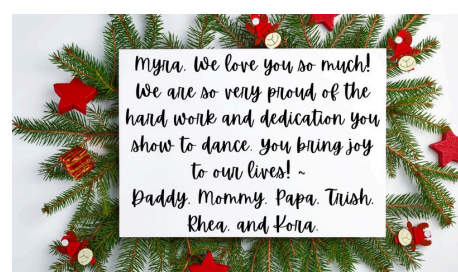 Myra. We love you so much!
We are so very proud of the
hard work and dedication you
show to dance. You bring joy
to our lives! ~
Daddy. Mommy. Papa. Trish.
Rhea. and Kora.